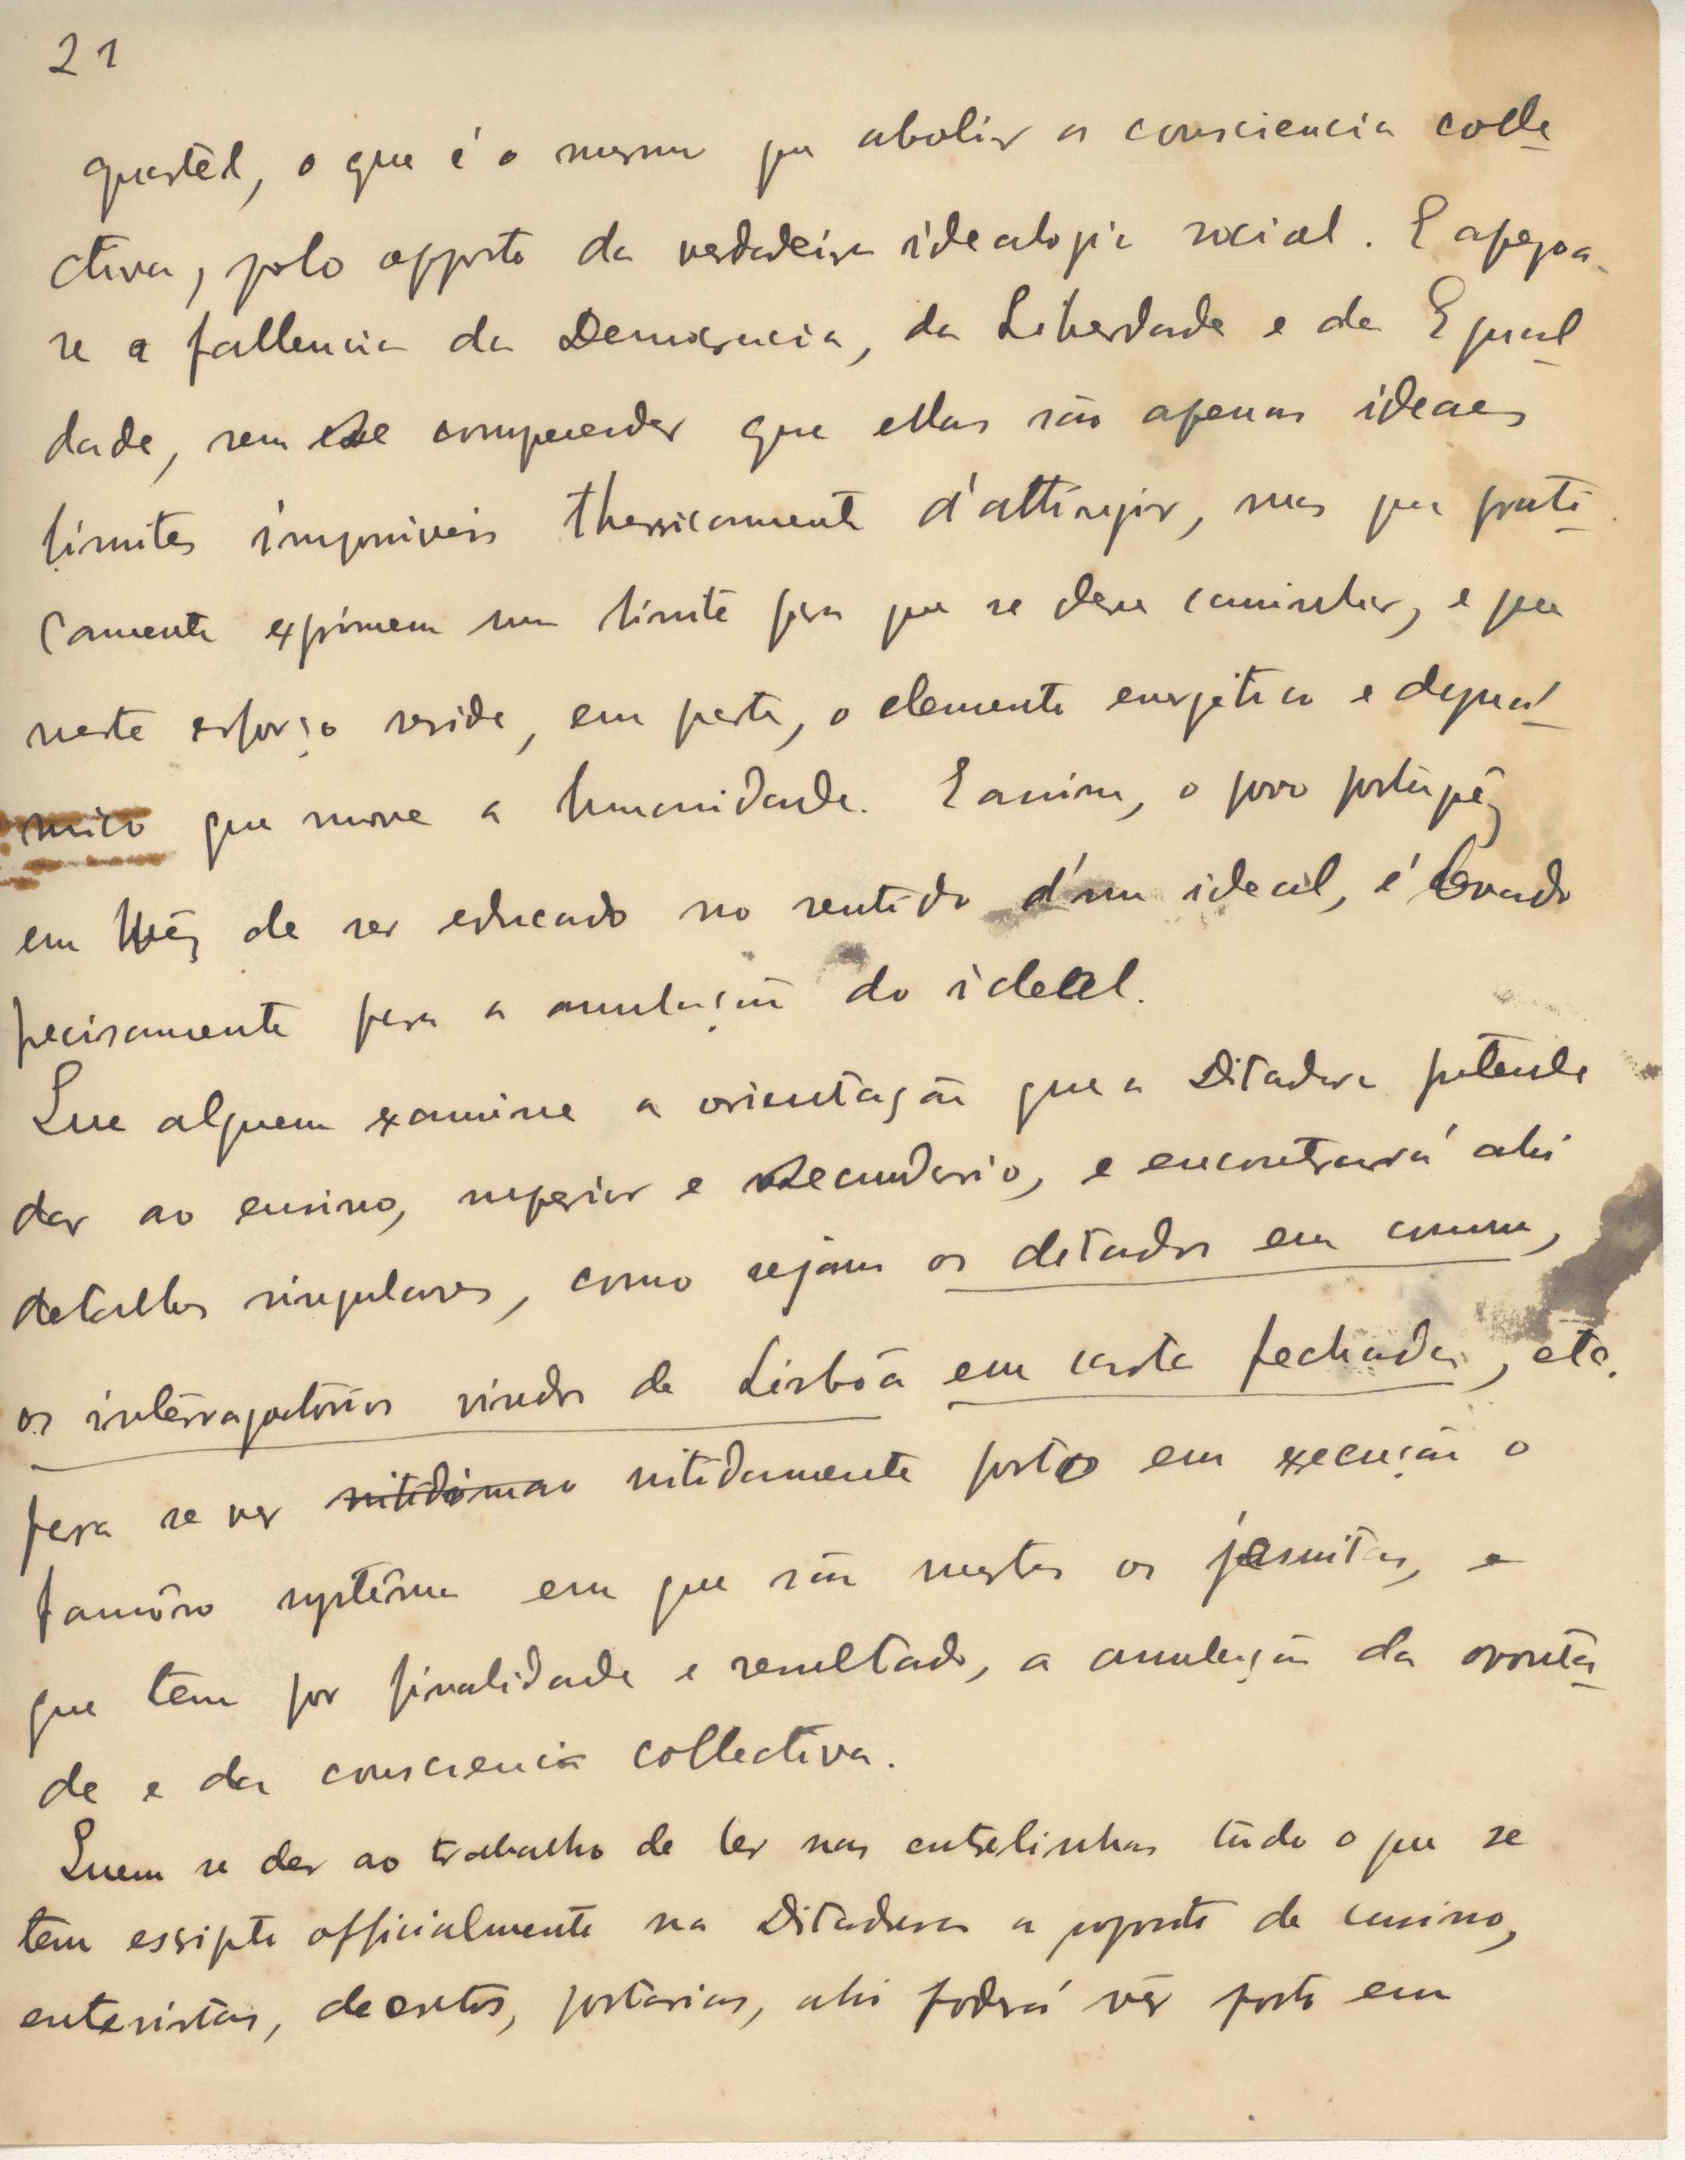 21
quartél, o que é o mesmo que abolir a consciencia colle-
ctiva, polo opposto da verdadeira idealogia social. E apregoa-
se a fallencia da Democracia, da Liberdade e da Egual-
dade, sem se comprehender que ellas são apenas ideaes
limites impossiveis theoricamente d'attingir, mas que prati-
camente exprimem um limite para que se deve caminhar, e que
neste esforço reside, em parte, o elemento energético e dynâ-
mico que move a humanidade. E assim, o povo português
em vêz de ser educado no sentido d'um ideal, é levado
precisamente para a annulação do ideal.
Que alguem examine a orientação que a Ditadura pretende
dar ao ensino, superior e secundario, e encontrará ahi
detalhes singulares, como sejam os ditados em comum,
os interrogatórios vindos de Lisbôa em carta fechada, etc.
para se ver nitidamente posto em execução o
famôso systêma em que são mestres os jesuitas, e
que tem por finalidade e resultado, a annulação da vonta-
de e da consciencia collectiva.
Quem se der ao trabalho de ler nas entrelinhas tudo o que se
tem escripto officialmente na Ditadura a proposito de ensino,
entrevistas, decretos, portarias, ahi poderá vêr posto em